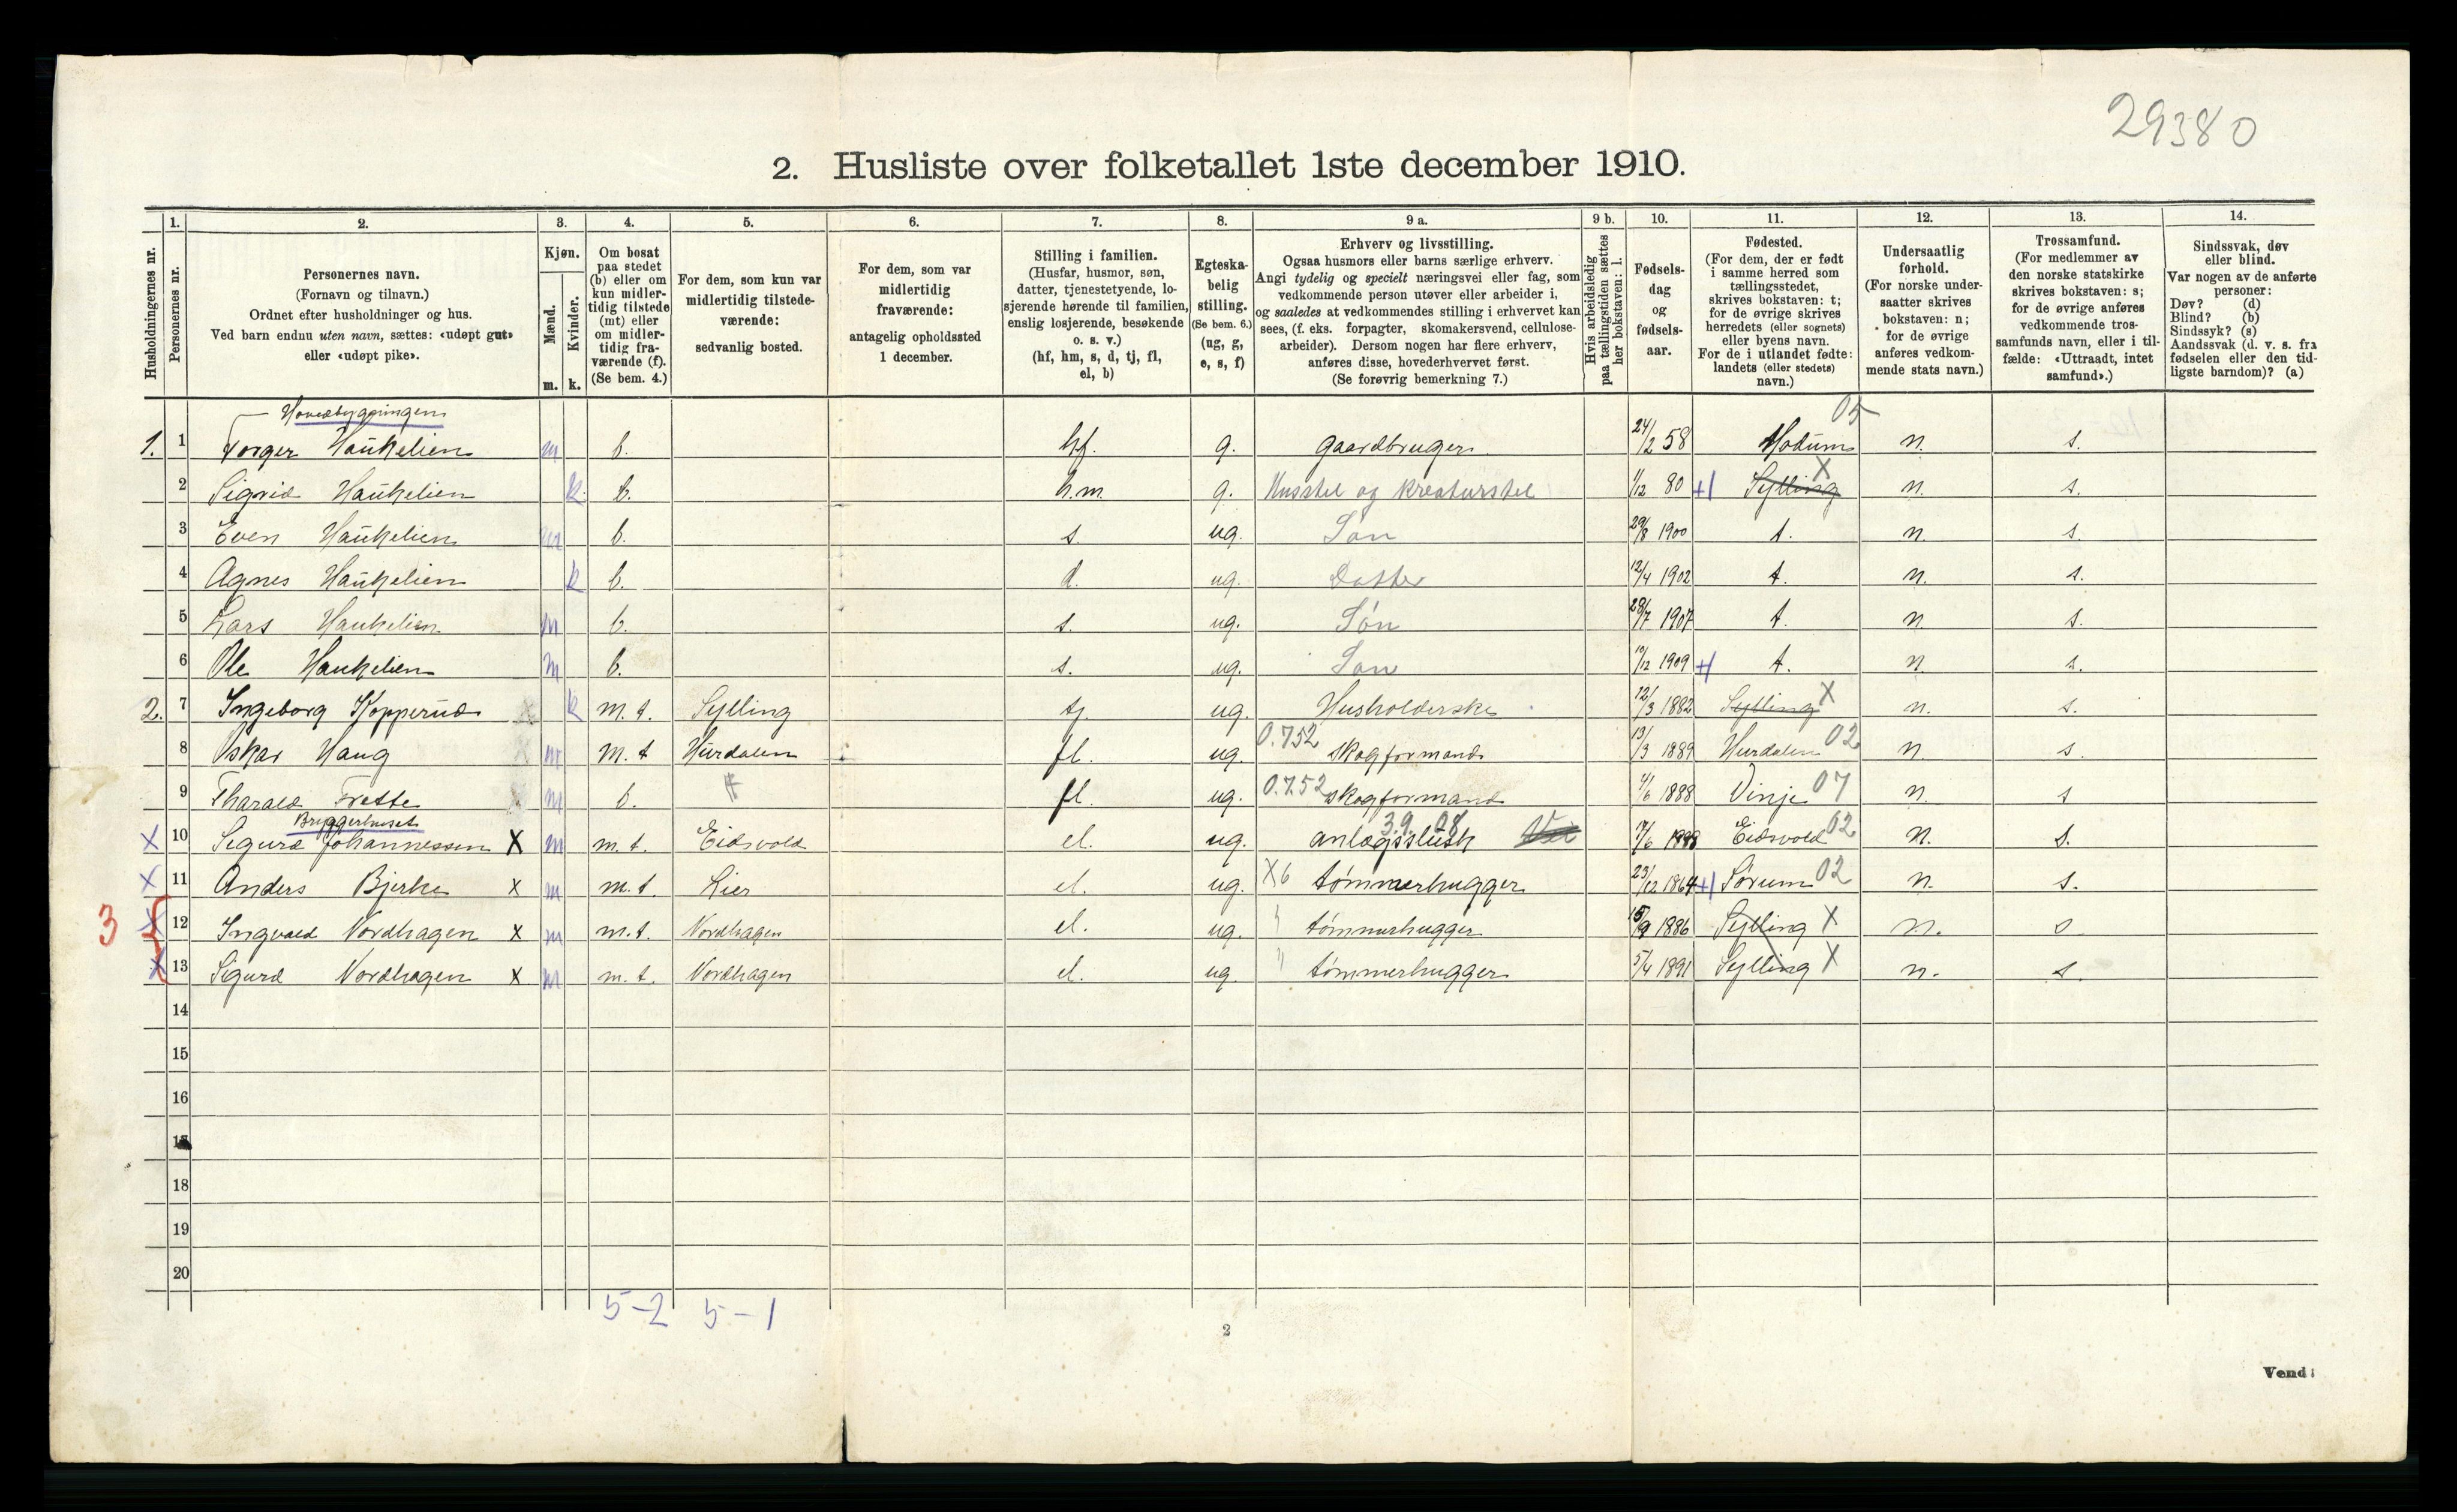 29380
2. Husliste over folketallet 1ste december 1910.
Husholdningernes nr.
1. Personernes nr.
2. Personernes navn.
(Fornavn og tilnavn.)
Ordnet efter husholdninger og hus.
Ved barn endnu uten navn, sættes: «udøpt gut»
eller «udøpt pike».
3. Kjøn.
Mænd. m.
Kvinder. k.
4. Om bosat
paa stedet
(b) eller om
kun midler-
tidig tilstede
(mt) eller
om midler-
tidig fra-
værende (f).
(Se bem. 4.)
5. For dem, som kun var
midlertidig tilstede-
værende:
sedvanlig bosted.
6. For dem, som var
midlertidig
fraværende:
antagelig opholdssted
1 december.
7. Stilling i familien.
(Husfar, husmor, søn,
datter, tjenestetyende, lo-
sjerende hørende til familien,
enslig losjerende, besøkende
o. s. v.)
(hf, hm, s, d, tj, fl,
el, b)
8. Egteska-
belig
stilling.
(Se bem. 6.)
(ug, g,
e, s, f)
9 a. Erhverv og livsstilling.
Ogsaa husmors eller barns særlige erhverv.
Angi tydelig og specielt næringsvei eller fag, som
vedkommende person utøver eller arbeider i,
og saaledes at vedkommendes stilling i erhvervet kan
sees, (f. eks. forpagter, skomakersvend, cellulose-
arbeider). Dersom nogen har flere erhverv,
anføres disse, hovederhvervet først.
(Se forøvrig bemerkning 7.)
9 b. Hvis arbeidsledig
paa tællingstiden sættes
her bokstaven: l.
10. Fødsels-
dag
og
fødsels-
aar.
11. Fødested.
(For dem, der er født
i samme herred som
tællingsstedet,
skrives bokstaven: t;
for de øvrige skrives
herredets (eller sognets)
eller byens navn.
For de i utlandet fødte:
landets (eller stedets)
navn.)
12. Undersaatlig
forhold.
(For norske under-
saatter skrives
bokstaven: n;
for de øvrige
anføres vedkom-
mende stats navn.)
13. Trossamfund.
(For medlemmer av
den norske statskirke
skrives bokstaven: s;
for de øvrige anføres
vedkommende tros-
samfunds navn, eller i til-
fælde: «Uttraadt, intet
samfund».)
14. Sindssvak, døv
eller blind.
Var nogen av de anførte
personer:
Døv? (d)
Blind? (b)
Sindssyk? (s)
Aandssvak (d. v. s. fra
fødselen eller den tid-
ligste barndom)? (a)
Hovedbygningen
1. 1 Torger Haukelien m b. hf. g. gaardbruger 24/2 58 Modum 05 n. s.
2 Sigrid Haukelien k b. h.m. g. Husstel og kreaturstel 1/12 80 +1 Sylling X n. s.
3 Even Haukelien m b. s. ug. Søn 29/8 1900 t. n. s.
4 Agnes Haukelien k b. d. ug. Datter 12/4 1902 t. n. s.
5 Lars Haukelien m b. s. ug. Søn 28/7 1907 t. n. s.
6 Ole Haukelien m b. s. ug. Søn 10/12 1909 +1 t. n. s.
2. 7 Ingeborg Kopperud X k m. t. Sylling tj. ug. Husholderske 12/3 1882 Sylling X n. s.
8 Oskar Haug X m m. t Hurdalen fl. ug. 0.752 skogformand 13/3 1889 Hurdalen 02 n. s.
9 Tharald Trette m b. fl. ug. 0.752 skogformand 4/6 1888 Vinje 07 n. s
Bryggerhuset
X 10 Sigurd Johannessen X m m. t. Eidsvold el. ug. 3.9.08 anlægsslusk 17/6 Eidsvold 02 n. s.
X 11 Anders Bjerke X m m. t. Lier el. ug. X6 tømmerhugger 23/12 1864 +1 Sørum 02 n. s.
3 X 12 Ingvald Nordhagen X m m. t. Nordhagen el. ug. " tømmerhugger 15/9 1886 Sylling X n. s
X 13 Sigurd Nordhagen X m m. t. Nordhagen el. ug. " tømmerhugger 5/4 1891 Sylling X n. s.
14
15
16
17
18
19
20
5-2 5-1
2
Vend!